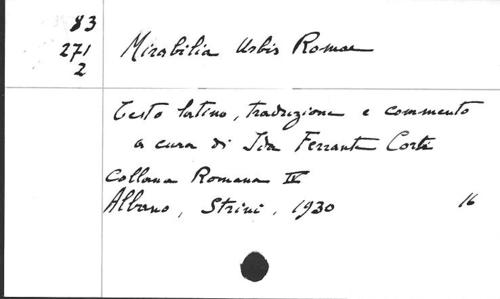 83
271
2
Mirabilia Urbis Romae
Testo latino, traduzione e commento
a cura di Ida Ferrante Corti
Collana Romana IV
Albano, Strini, 1930
16